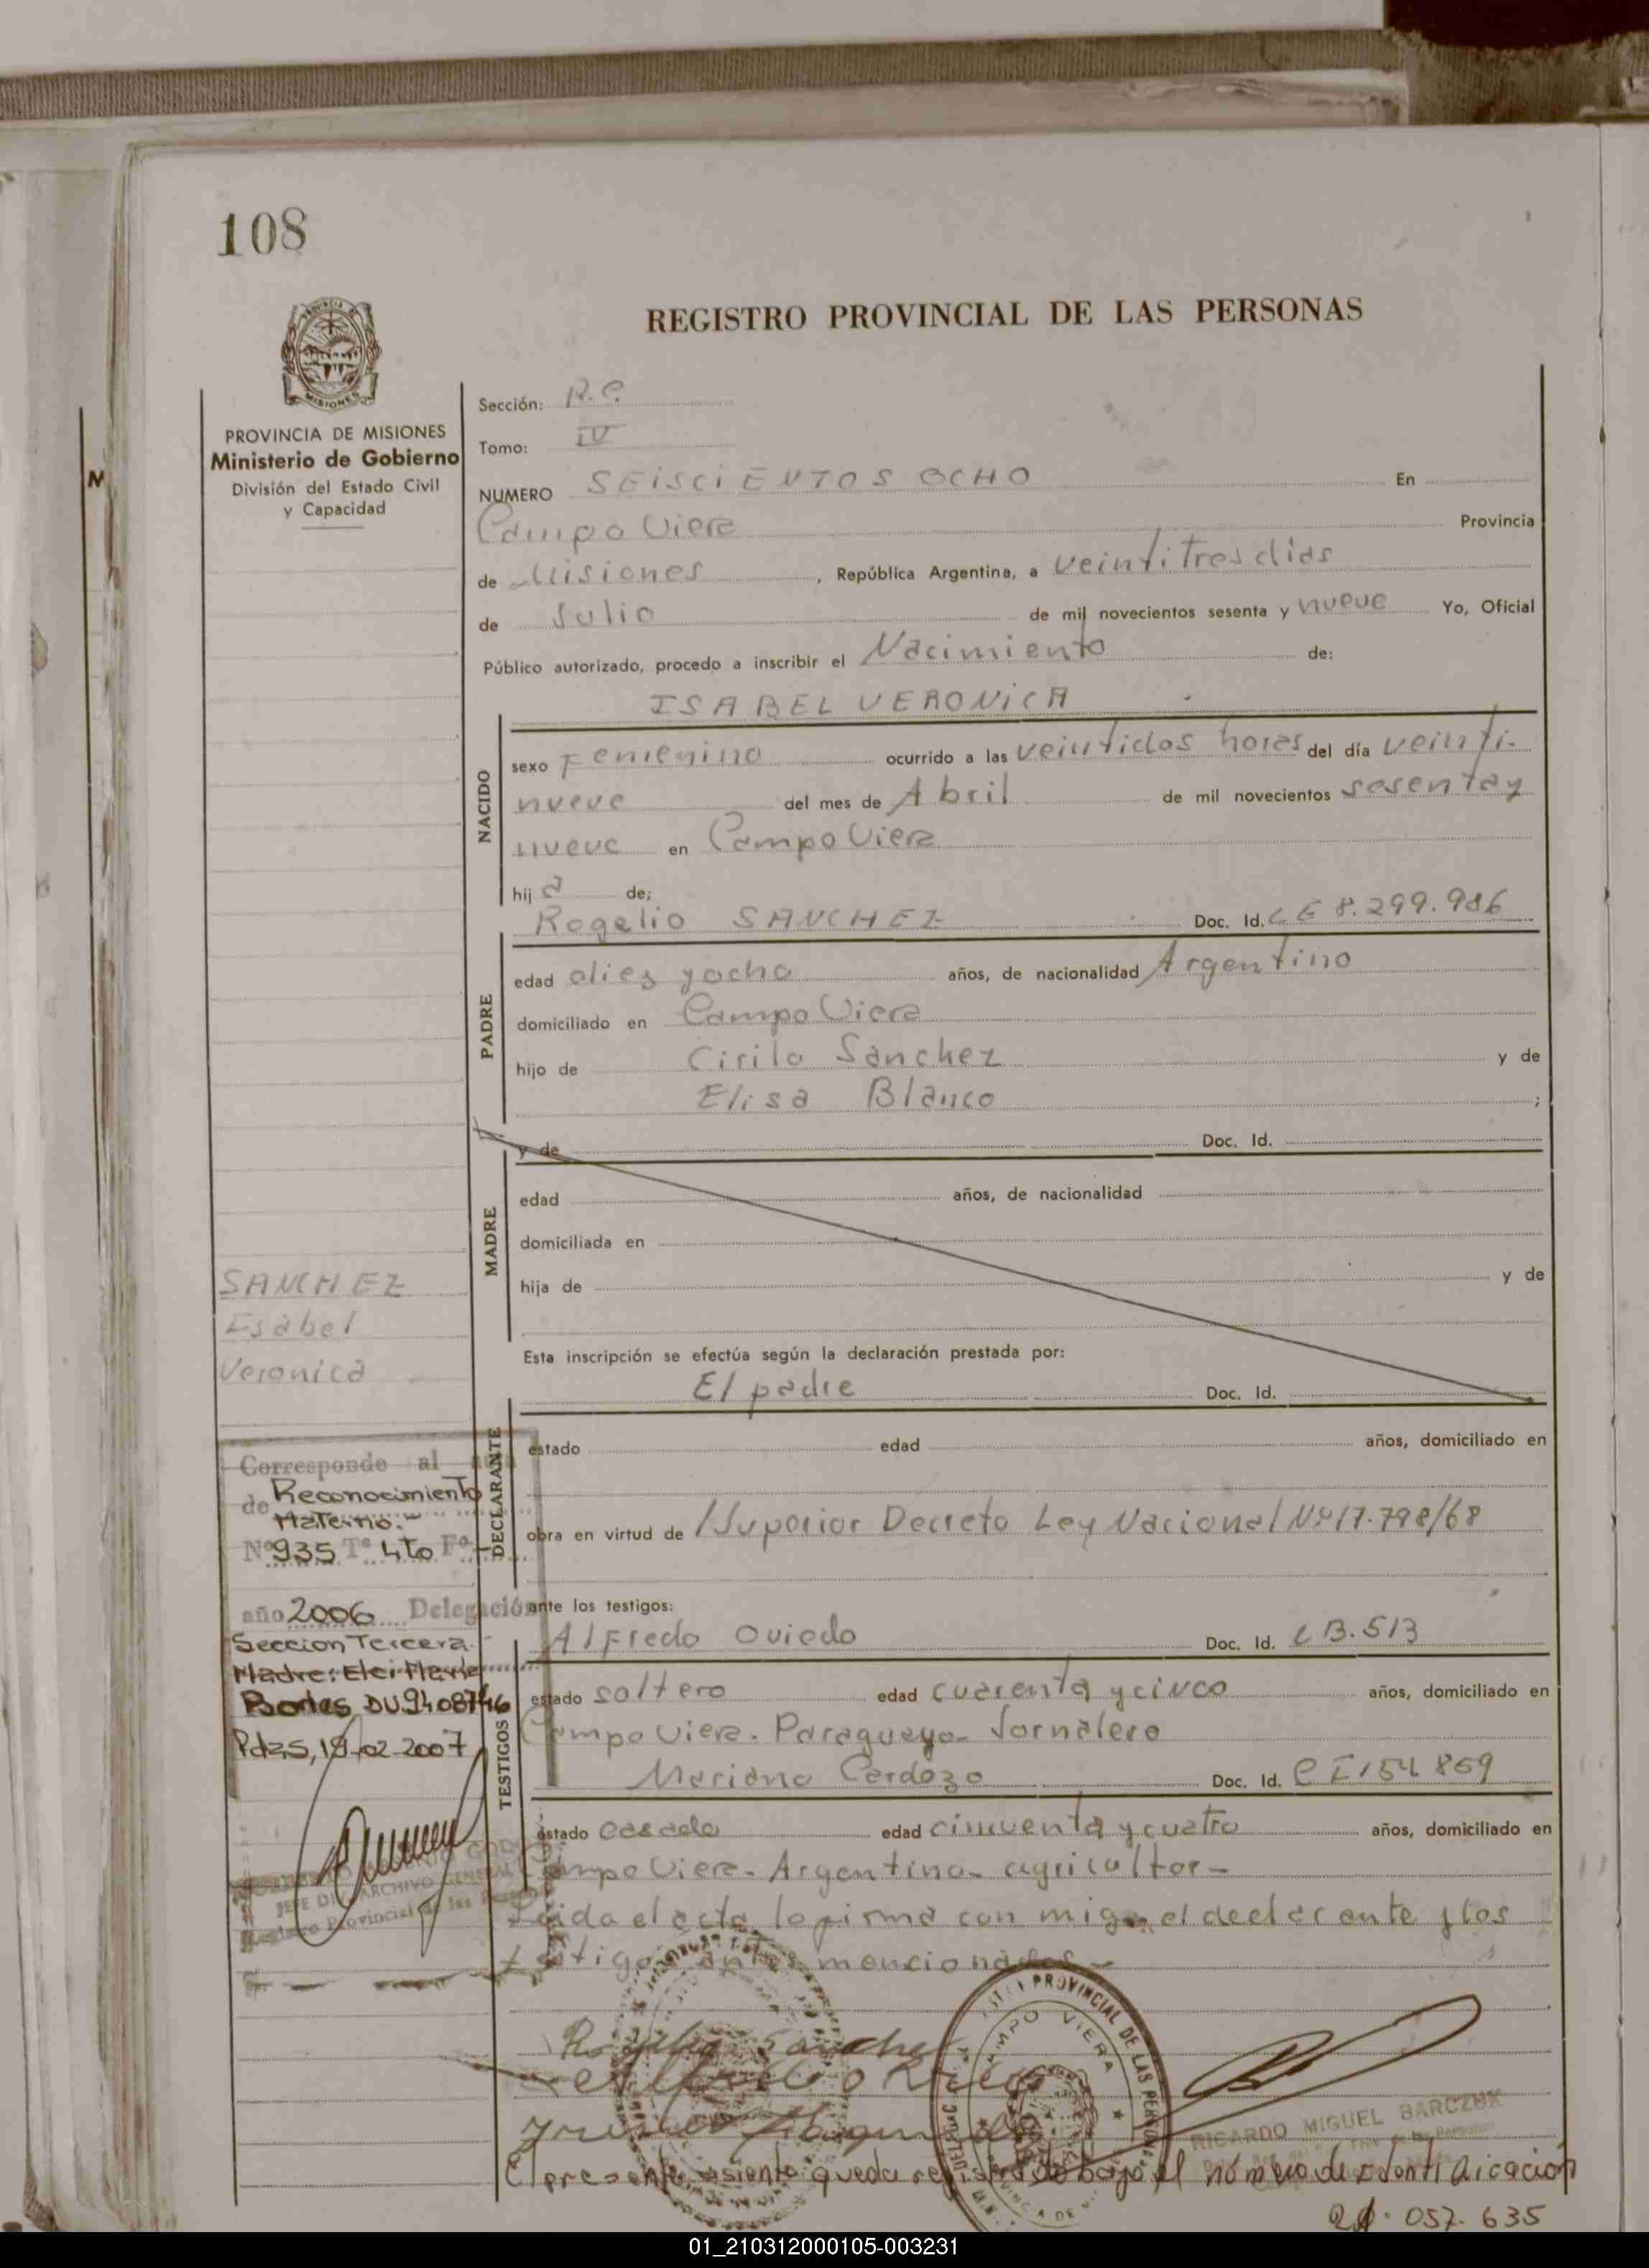 108
REGISTRO PROVINCIAL DE LAS PERSONAS
PROVINCIA DE MISIONES
Ministerio de Gobierno
División del Estado Civil
y Capacidad
Sección: R.C.
Tomo: IV
NUMERO SEISCIENTOS OCHO En
Campo Viera Provincia
de Misiones, República Argentina, a veintitres dias
de Julio de mil novecientos sesenta y nueve Yo, Oficial
Público autorizado, procedo a inscribir el Nacimiento de:
ISABEL VERONICA
NACIDO
sexo Femenino ocurrido a las veintidos horas del día veinti-
nueve del mes de Abril de mil novecientos sesentay
nueve en Campo Viera
hij a de;
Rogelio SANCHEZ Doc. Id. LE 8.299.986
PADRE
edad diez yocho años, de nacionalidad Argentino
domiciliado en Campo Viera
hijo de Cirilo Sanchez y de
Elisa Blanco ;
y de Doc. Id.
MADRE
edad años, de nacionalidad
domiciliada en
hija de y de
SANCHEZ
Isabel
Veronica
Esta inscripción se efectúa según la declaración prestada por:
El padre Doc. Id.
DECLARANTE
estado edad años, domiciliado en
obra en virtud de /Superior Decreto Ley Nacional Nº 17.798/68
Corresponde al acta
de Reconocimiento
Materno.
Nº 935 Tº 4to Fº -
año 2006 Delegación
Seccion Tercera
Madre: Elci Maria
DU 9408746
Pdas, 19-02-2007
JEFE DE ARCHIVO GENERAL
Registro Provincial de las Personas
ante los testigos:
Alfredo Oviedo Doc. Id. C B.513
TESTIGOS
estado soltero edad cuarenta ycinco años, domiciliado en
Campo Viera. Paraguayo- Jornalero
Mariano Cardozo Doc. Id. CI 154859
estado casado edad cincuenta ycuatro años, domiciliado en
Campo Viera- Argentino- agricultor-
Leida el acta la firma con migo el declarante ylos
testigos antes mencionados-
Rogelio Sanchez
PROVINCIAL DE LAS PERSONAS
CAMPO VIERA
RICARDO MIGUEL BARCZUK
El presente asiento queda registrado bajo el número de Identificación
21.057.635
01_210312000105-003231